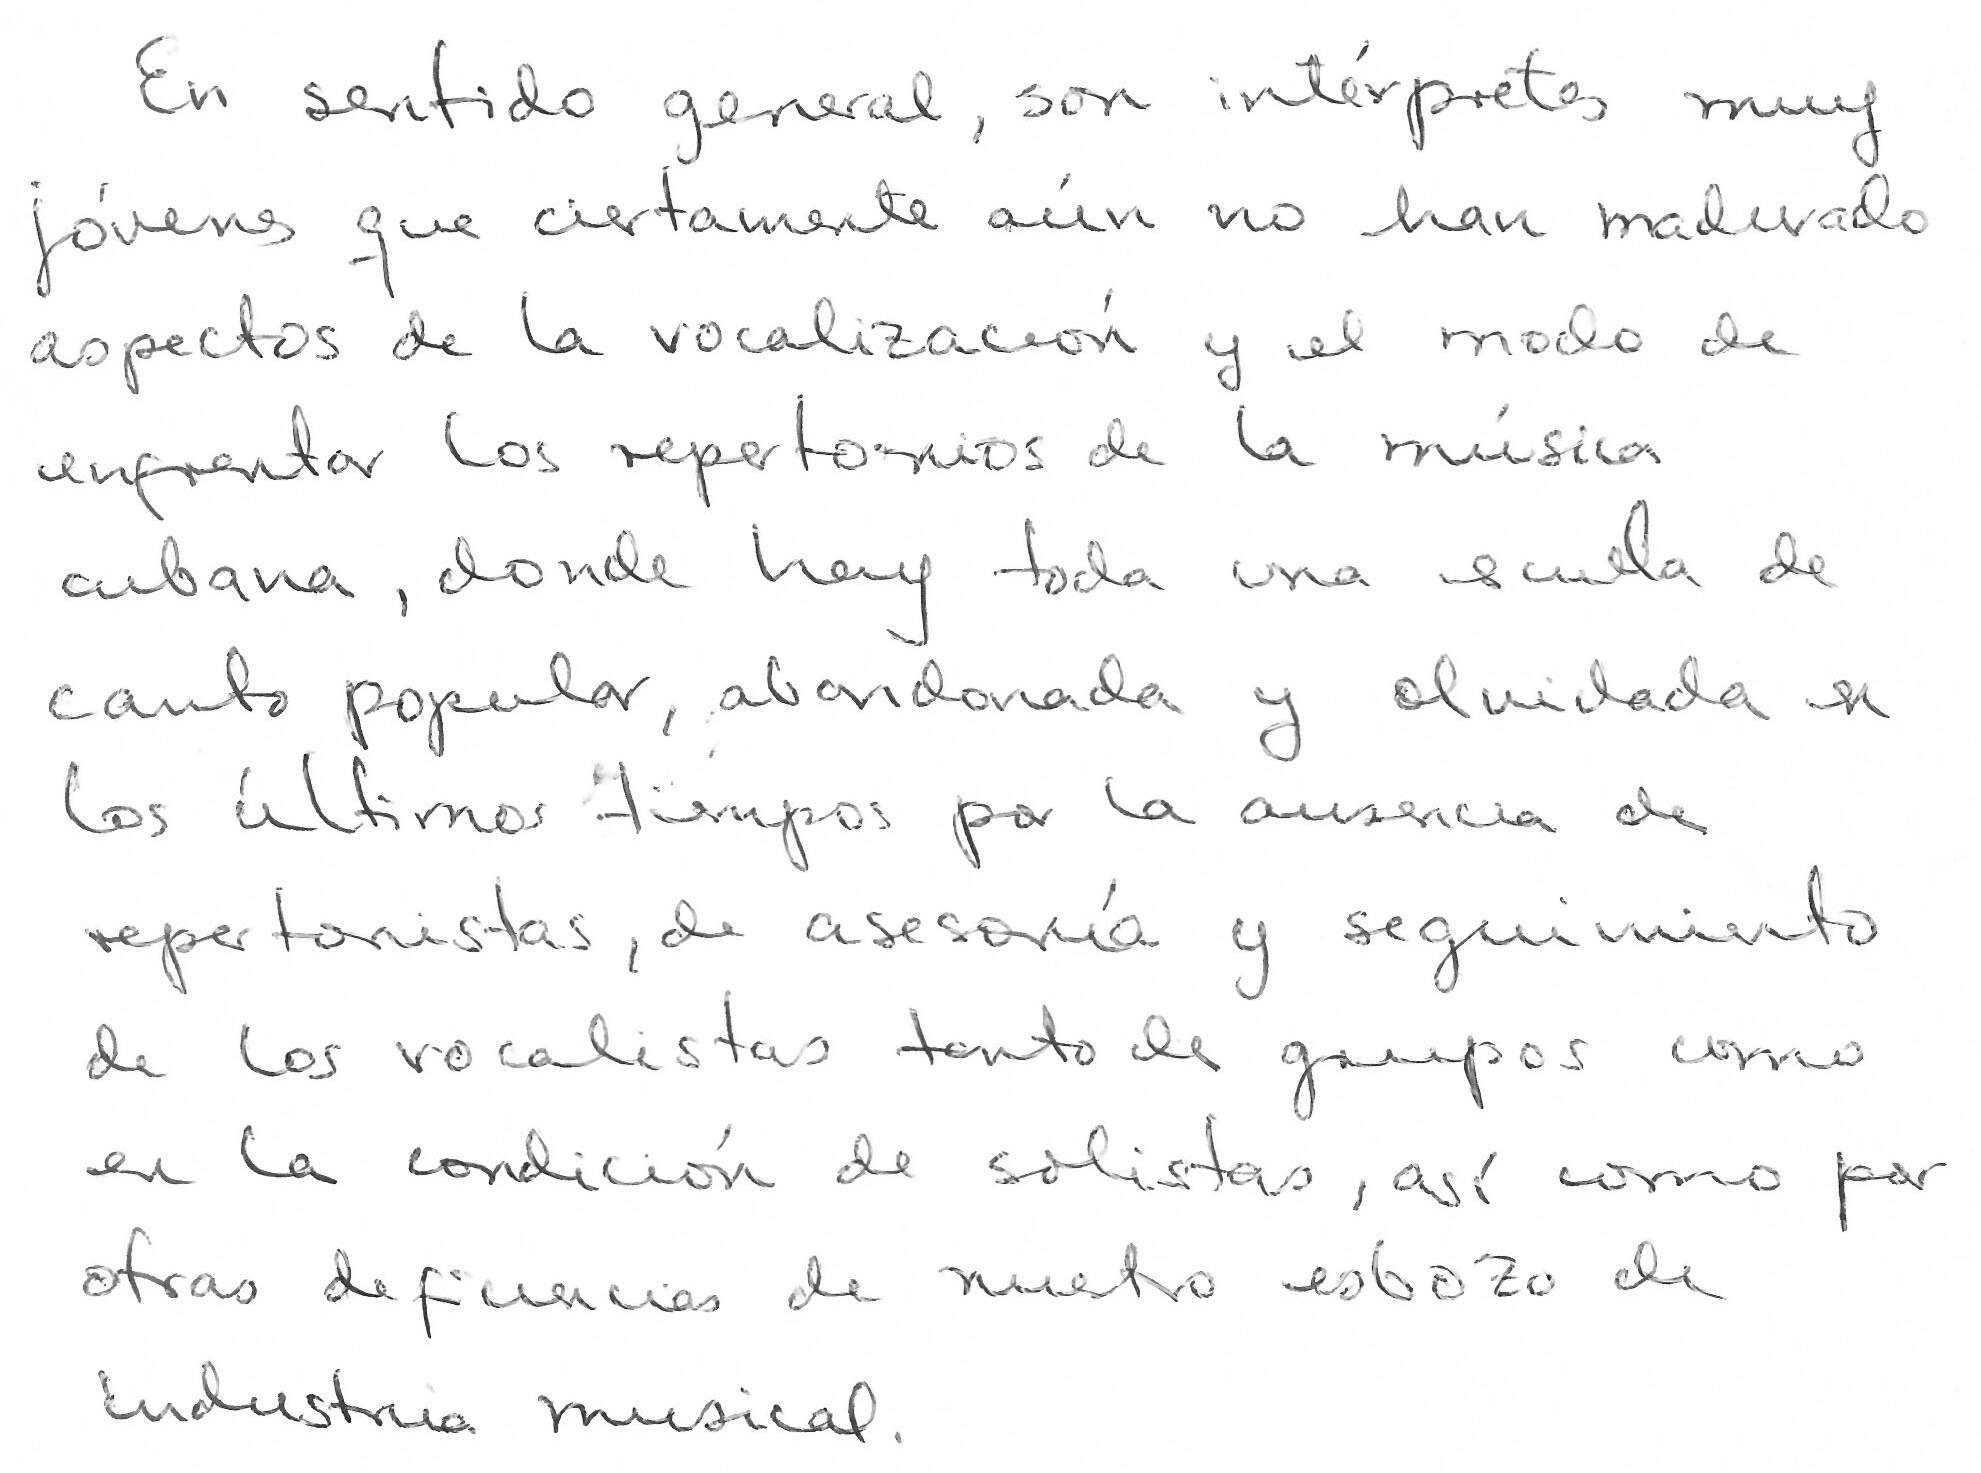 En sentido general, son intérpretes muy
jóvenes que ciertamente aún no han madurado
aspectos de la vocalización y el modo de
enfrentar los repertorios de la música
cubana, donde hay toda una escuela de
canto popular, abandonada y olvidada en
los últimos tiempos por la ausencia de
repertoristas, de asesoría y seguimiento
de los vocalistas tanto de grupos como
en la condición de solistas, así como por
otras deficiencias de nuestro esbozo de
industria musical.